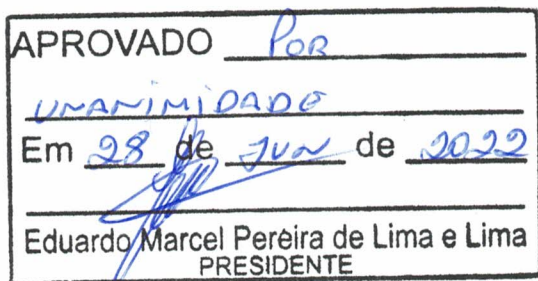 APROVADO POR
UNANIMIDADE
Em 28 de JUN de 2022
Eduardo Marcel Pereira de Lima e Lima
PRESIDENTE